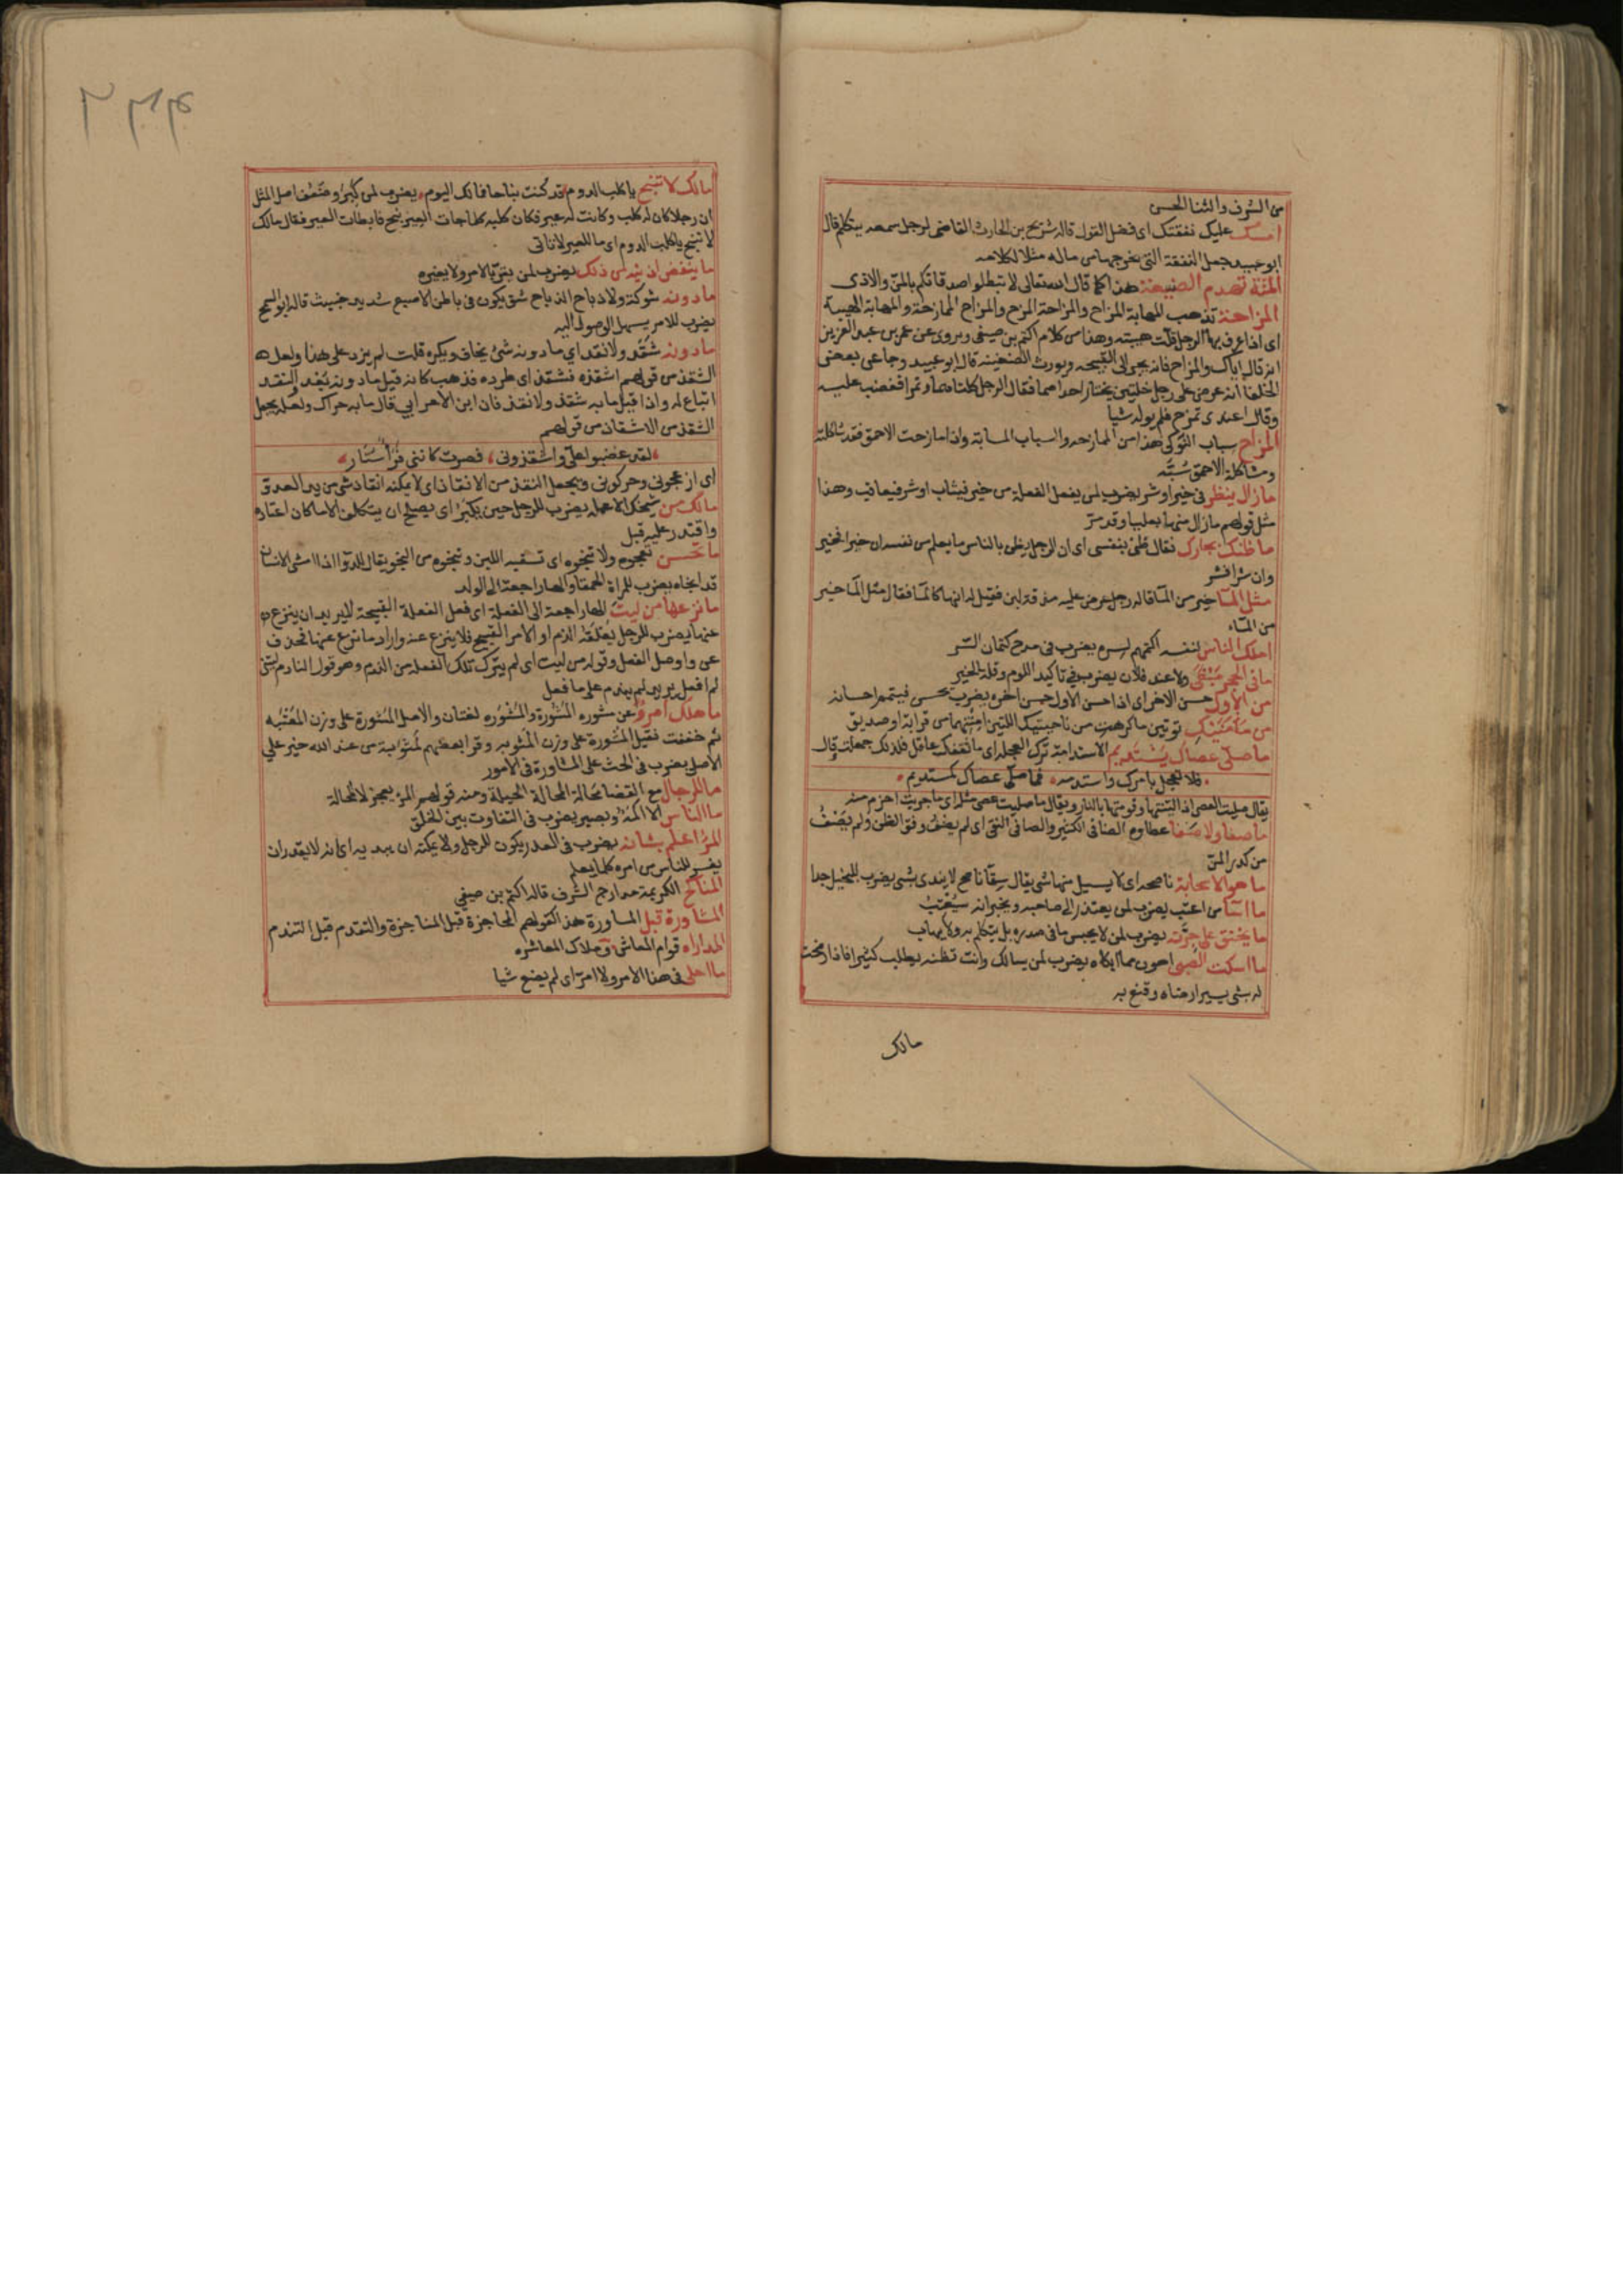 من الشرف والثنا الحسن
امسك عليك نفقتك اى فضل القول قاله شريح بن الحارث القاضى لرجل سمعه يتكلم قال
ابو عبيد جعل النفقة التى يخرجها من ماله مثلا لكلامه
المنة تهدم الصنيعة هذا كما قال الله تعالى لا تبطلوا صدقاتكم بالمن والاذى
المزاحة تذهب المهابة المزاح والمزاحة المزح والمزاح الممازحة والمهابة الهيبة
اى اذا عرف بها الرجل قلت هيبته وهذا من كلام اكثم بن صيفى ويروى عن عمر بن عبد العزيز
انه قال اياك والمزاح فانه يجر الى القبيحه ويورث الضغينة قال ابو عبيد وجا عن بعض
الخلفا انه عرض على رجل خلتين يختار احداهما فقال الرجل كلتاهما وتمرا فغضب عليه
وقال اعندى تمزح فلم يوله شيا
المزاح سباب النوكى هذا من الممازحه والسباب المسابة واذا مازحت الاحمق فقد شاكلته
ومشاكلة الاحمق سبة
ما زال ينظر فى خير او شر يضرب لمن يفعل الفعلة من خير فيثاب او شر فيعاقب وهذا
مثل قولهم ما زال منها بعليا وقد مر
ما ظنك بجارك فقال ظنى بنفسى اى ان الرجل يظن بالناس ما يعلم من نفسه ان خيرا فخير
وان شرا فشر
مثل الما خير من الما قاله رجل عرض عليه مذقة لبن فقيل له انها كالما فقال مثل الما خير
من الماء
املك الناس لنفسه اكتمهم لسره يضرب فى مدح كتمان السر
ما فى الحجر مبغى ولا عند فلان يضرب فى تاكيد اللوم وقلة الخير
حسن الاخر اى اذا حسن الاول حسن الاخر يضرب لمن يحسن فيتمم احسانه
من مأمنيك توتين ما كرهت من ناحيتيك اللتين امنتهما من قرابة او صديق
ما صلى عصاك كمستديم الاستدامة ترك العجلة اى ما ثقفك عاقل فلذلك جهلت قال
فلا تعجل بامرك واستدمه فما صلى عصاك كمستديم
يقال صليت العصى اذا لينتها وقومتها بالنار ويقال ما صليت عصى مثله اى ما جربت احزم منه
ما صفا ولا ضفا عطاوه الضافى الكثير والصافى النقى اى لم يضف وفق الظن ولم يصف
من كدر المن
ما هو الا سحابة ناصحه اى لا يسيل منها شى يقال سقا ناصح لا يندى بشى يضرب للبخيل جدا
ما اسا من اعتب يضرب لمن يعتذر الى صاحبه ويخبر انه سيعتب
ما يخنق على جرته يضرب لمن لا يحبس ما فى صدره بل يتكلم به ولا يهاب
ما اسكت الصبى اهون مما ابكاه يضرب لمن يسالك وانت تظنه يطلب كثيرا فاذا رضخت
له بشى يسير ارضاه وقنع به
مالك
مالك لا تنبح يا كلب الدوم قد كنت نباحا فمالك اليوم يضرب لمن كبر وضعف اصل المثل
ان رجلا كان له كلب وكانت له عير فكان كلبه كلما جات العير ينبح فابطات العير فقال مالك
لا تنبح يا كلب الدوم اى ما للعير لا تاتى
ذلك يضرب لمن يهتم بالامر ولا يعنيه
ما دونه شوكة ولا ذباح الذباح شق يكون فى باطن الاصبع شديد خبيث قاله ابو السمح
يضرب للامر يسهل الوصول اليه
ما دونه شقذ ولا نقذ اي ما دونه شئ يخاف ويكره قلت لم يزد على هذا ولعل
الشقذ من قولهم اشقذه فشقذ اى طرده فذهب كانه قيل ما دونه بعد النقذ
اتباع له واذا قيل ما به شقذ ولا نقذ فان ابن الاعرابي قال ما به حراك ولعله يجعل
الشقذ من الاشقاذ من قولهم
لقد غضبوا على واشقذونى فصرت كاننى فرا متار
اى ازعجونى وحركونى ويجعل النقذ من الانقاذ اى لا يمكنه انقاذ شى من يد العدو
مالك من شيخك الا عمله يضرب للرجل حين يكبر اى يصلح ان يتكلف الا ما كان اعتاده
واقتدر عليه قبل
ما تحسن تعجوه ولا تنجوه اى تسقيه اللبن وتنجوه من النجو يقال للدوا اذا امشى الانسان
قد انجاه يضرب للمراة الحمقا والها راجعة الى الولد
ما نزعها من ليت الها راجعة الى الفعلة اى فعل الفعلة القبيحة لا يريد ان ينزع
عنها يضرب للرجل يعلقه الذم او الامر القبيح فلا ينزع عنه واراد ما نزع عنها فحذف
عن واوصل الفعل وقوله من ليت اى لم يترك تلك الفعلة من الندم وهو قول النادم ليتنى
لم افعل يريد لم يندم على ما فعل
ما هلك امرؤ عن مشوره المشورة والمشوره لغتان والاصل المشورة على وزن المعتبه
ثم خففت فقيل المشورة على وزن المثوبه وقرا بعضهم لمثوبة من عند الله خير على
الاصل يضرب فى الحث على المشاورة فى الامور
ما للرجال مع القضا محالة المحالة الحيلة ومنه قولهم المرؤ يعجز لا المحالة
ما الناس الا اكمه وبصير يضرب فى التفاوت بين الخلق
المرؤ اعلم بشانه يضرب فى العذر يكون للرجل ولا يمكنه ان يبديه اى انه لا يقدر ان
يفسر للناس من امره كلما يعلم
المناكح الكريمة مدارج الشرف قاله اكثم بن صيفي
المشاورة قبل المساورة هذا كقولهم المحاجزة قبل المناجزة والتقدم قبل التندم
المداراه قوام المعاش وملاك المعاشره
ما احلى فى هذا الامر ولا امر اى لم يصنع شيا